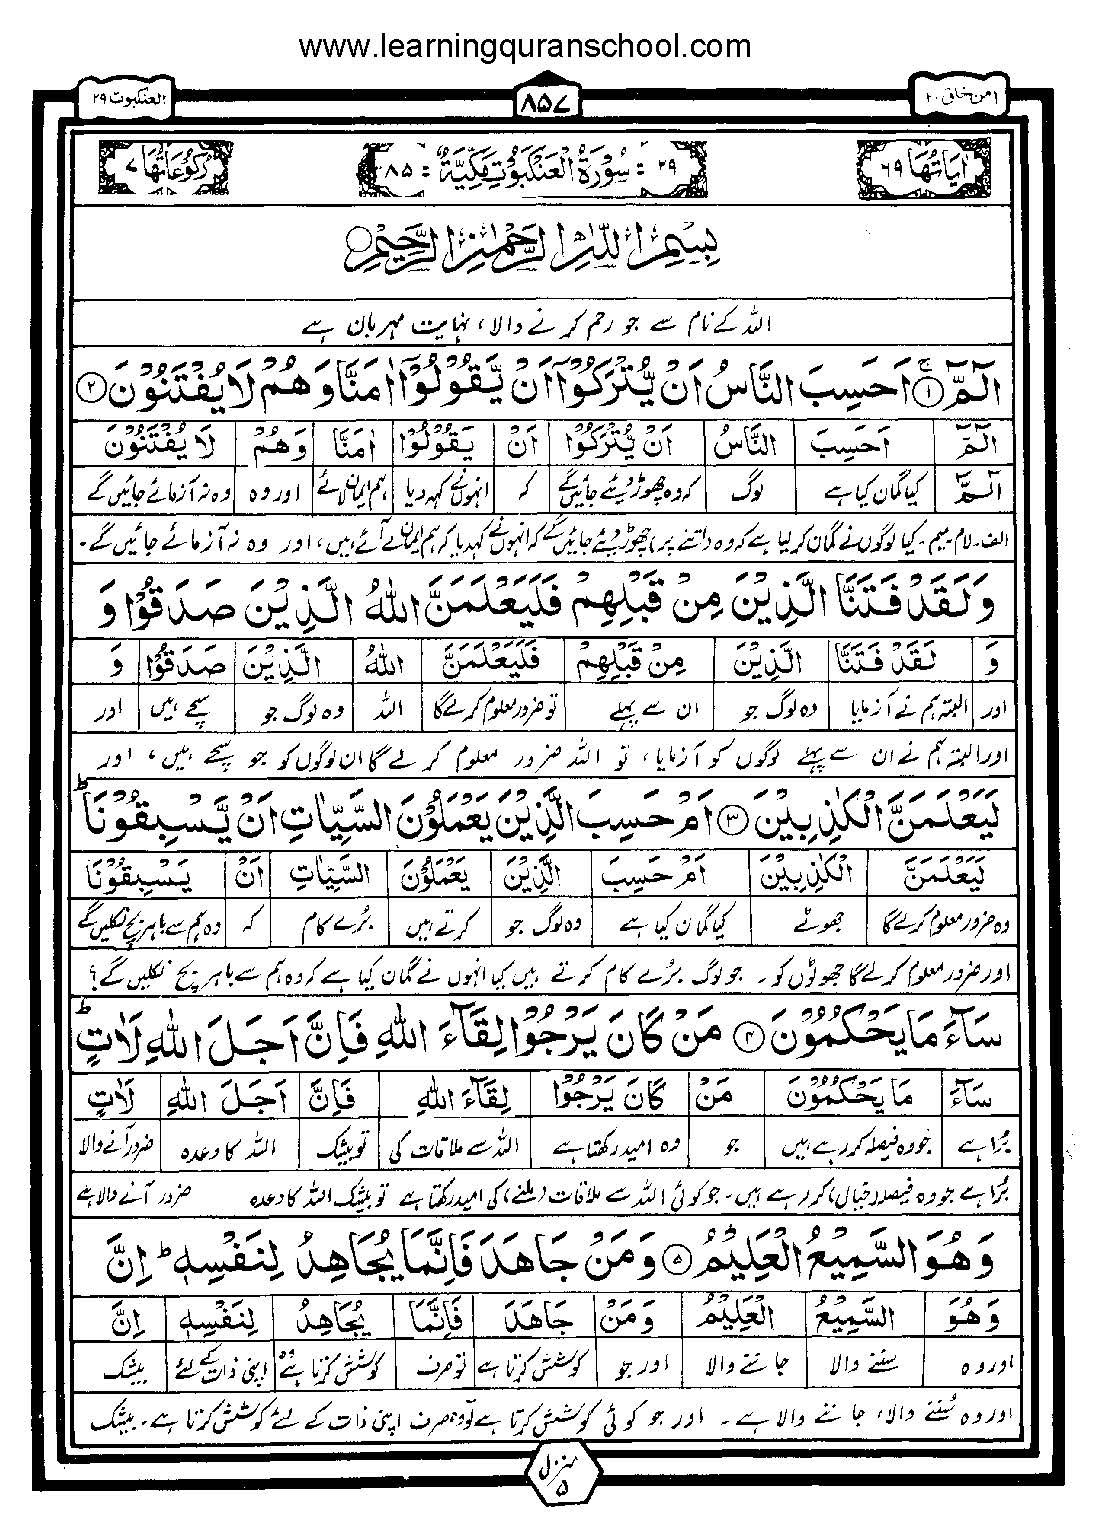 www.learningquranschool.com
امن خلق ۲۰ ۸۵۷ العنکبوت ۲۹
اٰیَاتُهَا ۶۹ ۲۹ : سُوْرَةُ الْعَنْکَبُوْتِ مَکِّیَّةٌ : ۸۵ رُکُوْعَاتُهَا ۷
بِسْمِ اللّٰهِ الرَّحْمٰنِ الرَّحِیْمِ
اللہ کے نام سے جو رحم کرنے والا، نہایت مہربان ہے
الٓمّٓ ۚ﴿۱﴾ اَحَسِبَ النَّاسُ اَنْ یُّتْرَكُوْۤا اَنْ یَّقُوْلُوْۤا اٰمَنَّا وَهُمْ لَا یُفْتَنُوْنَ ﴿۲﴾
الٓمّٓ اَحَسِبَ النَّاسُ اَنْ یُّتْرَكُوْۤا اَنْ یَقُوْلُوْۤا اٰمَنَّا وَهُمْ لَا یُفْتَنُوْنَ
الٓمّٓ کیا گمان کیا ہے لوگ کہ وہ چھوڑ دیئے جائیں گے کہ انہوں نے کہہ دیا ہم ایمان لائے اور وہ وہ نہ آزمائے جائیں گے
الف۔ لام میم۔ کیا لوگوں نے گمان کر لیا ہے کہ وہ (اتنے پر) چھوڑ دیئے جائیں گے کہ انہوں نے کہدیا کہ ہم ایمان لے آئے ہیں، اور وہ نہ آزمائے جائیں گے۔
وَ لَقَدْ فَتَنَّا الَّذِیْنَ مِنْ قَبْلِهِمْ فَلَیَعْلَمَنَّ اللّٰهُ الَّذِیْنَ صَدَقُوْا وَ
وَ لَقَدْ فَتَنَّا الَّذِیْنَ مِنْ قَبْلِهِمْ فَلَیَعْلَمَنَّ اللّٰهُ الَّذِیْنَ صَدَقُوْا وَ
اور البتہ ہم نے آزمایا وہ لوگ جو ان سے پہلے تو ضرور معلوم کرلے گا اللہ وہ لوگ جو سچے ہیں اور
اور البتہ ہم نے ان سے پہلے لوگوں کو آزمایا، تو اللہ ضرور معلوم کر لے گا ان لوگوں کو جو سچے ہیں، اور
لَیَعْلَمَنَّ الْكٰذِبِیْنَ ﴿۳﴾ اَمْ حَسِبَ الَّذِیْنَ یَعْمَلُوْنَ السَّیِّاٰتِ اَنْ یَّسْبِقُوْنَا ؕ
لَیَعْلَمَنَّ الْكٰذِبِیْنَ اَمْ حَسِبَ الَّذِیْنَ یَعْمَلُوْنَ السَّیِّاٰتِ اَنْ یَسْبِقُوْنَا
وہ ضرور معلوم کرلے گا جھوٹے کیا گمان کیا ہے وہ لوگ جو کرتے ہیں بُرے کام کہ وہ ہم سے باہر بچ نکلیں گے
اور ضرور معلوم کرلے گا جھوٹوں کو۔ جو لوگ بُرے کام کرتے ہیں کیا انہوں نے گمان کیا ہے کہ وہ ہم سے باہر بچ نکلیں گے؟
سَآءَ مَا یَحْكُمُوْنَ ﴿۴﴾ مَنْ كَانَ یَرْجُوْا لِقَآءَ اللّٰهِ فَاِنَّ اَجَلَ اللّٰهِ لَاٰتٍ ؕ
سَآءَ مَا یَحْكُمُوْنَ مَنْ كَانَ یَرْجُوْا لِقَآءَ اللّٰهِ فَاِنَّ اَجَلَ اللّٰهِ لَاٰتٍ
بُرا ہے جو وہ فیصلہ کر رہے ہیں جو وہ امید رکھتا ہے اللہ سے ملاقات کی تو بیشک اللہ کا وعدہ ضرور آنے والا
بُرا ہے جو وہ فیصلہ (خیال) کر رہے ہیں۔ جو کوئی اللہ سے ملاقات (ملنے) کی امید رکھتا ہے تو بیشک اللہ کا وعدہ ضرور آنے والا ہے
وَهُوَ السَّمِیْعُ الْعَلِیْمُ ﴿۵﴾ وَمَنْ جَاهَدَ فَاِنَّمَا یُجَاهِدُ لِنَفْسِهٖ ؕ اِنَّ
وَهُوَ السَّمِیْعُ الْعَلِیْمُ وَمَنْ جَاهَدَ فَاِنَّمَا یُجَاهِدُ لِنَفْسِهٖ اِنَّ
اور وہ سننے والا جاننے والا اور جو کوشش کرتا ہے تو صرف کوشش کرتا ہے وہ اپنی ذات کے لئے بیشک
اور وہ سُننے والا، جاننے والا ہے۔ اور جو کوئی کوشش کرتا ہے تو وہ صرف اپنی ذات کے لئے کوشش کرتا ہے۔ بیشک
منزل ۵